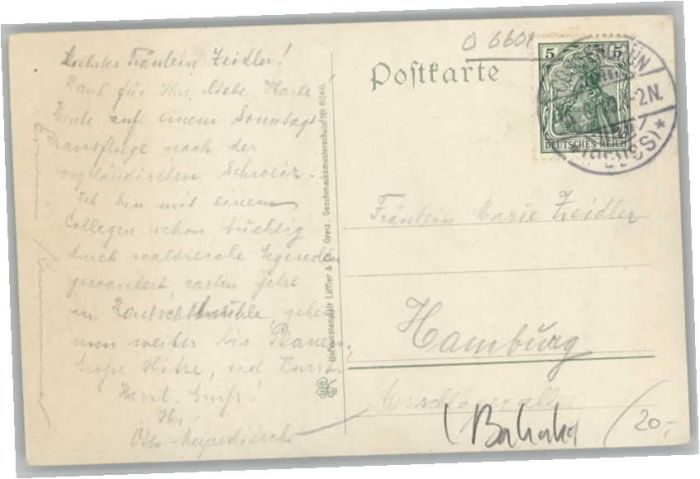 O 6601
Postkarte
5 5
DEUTSCHES REICH
Fräulein Zeidler!
Dank für Ihre liebe Karte!
Heute auf einem Sonntags
ausfluge nach der
vogtländischen Schweiz.
Ich bin mit einem
Collegen schon tüchtig
durch waldreiche Gegenden
gewandert, rasten jetzt
in gehen
nun weiter bis Plauen.
Große Hitze, viel Durst.
Herzl. Gruß!
Ihr
Otto
Löffler & Co. Greiz.
Fräulein Marie Zeidler
Hamburg
Ausschlägerallee
20,-